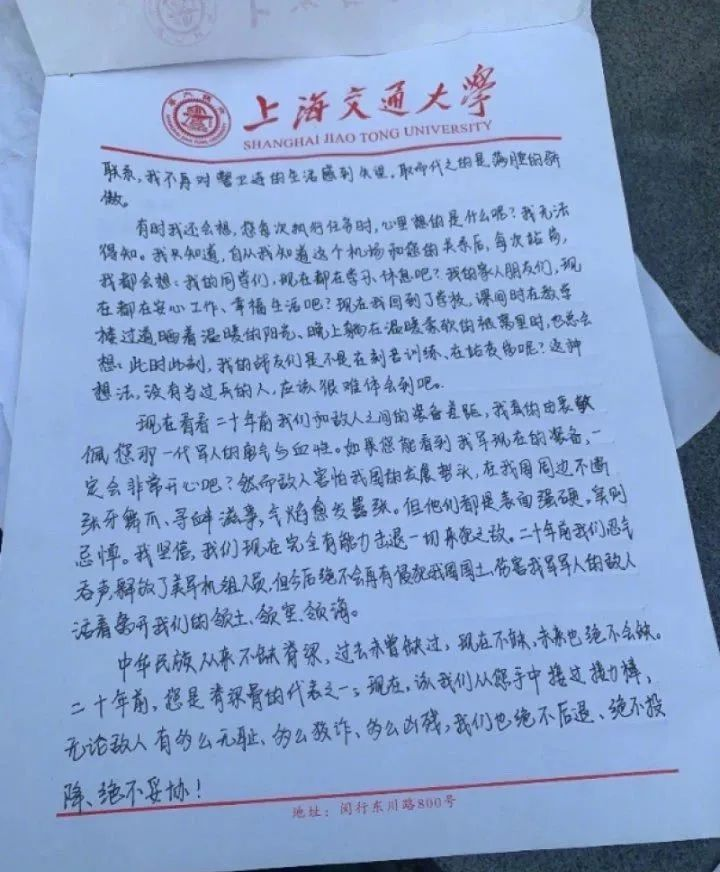 上海交通大學
SHANGHAI JIAO TONG UNIVERSITY
联系,我不再对警卫连的生活感到失望。取而代之的是满腔的骄
傲。
有时我还会想,您每次执行任务时,心里想的是什么呢?我无法
得知。我只知道,自从我知道这个机场和您的关系后,每次站岗,
我都会想:我的同学们,现在都在学习、休息吧?我的家人朋友们,现
在都在安心工作、幸福生活吧?现在我回到了学校,课间时在教学
楼过道晒着温暖的阳光、晚上躺在温暖柔软的被窝里时,也总会
想:此时此刻,我的战友们是不是在刻苦训练、在站夜岗呢?这种
想法,没有当过兵的人,应该很难体会到吧。
现在看看二十年前我们和敌人之间的装备差距,我真的由衷敬
佩您那一代军人的勇气与血性。如果您能看到我军现在的装备,一
定会非常开心吧?然而敌人害怕我国的发展势头,在我国周边不断
张牙舞爪、寻衅滋事,气焰愈发嚣张。但他们都是表面强硬,实则
忌惮。我坚信,我们现在完全有能力击退一切来犯之敌。二十年前我们忍气
吞声,释放了美军机组人员,但今后绝不会再有侵犯我国国土、伤害我军军人的敌人
活着离开我们的领土、领空、领海。
中华民族从来不缺脊梁,过去未曾缺过,现在不缺,未来也绝不会缺。
二十年前,您是脊梁骨的代表之一;现在,该我们从您手中接过接力棒,
无论敌人有多么无耻、多么狡诈、多么凶残,我们也绝不后退、绝不投
降、绝不妥协!
地址:闵行东川路800号